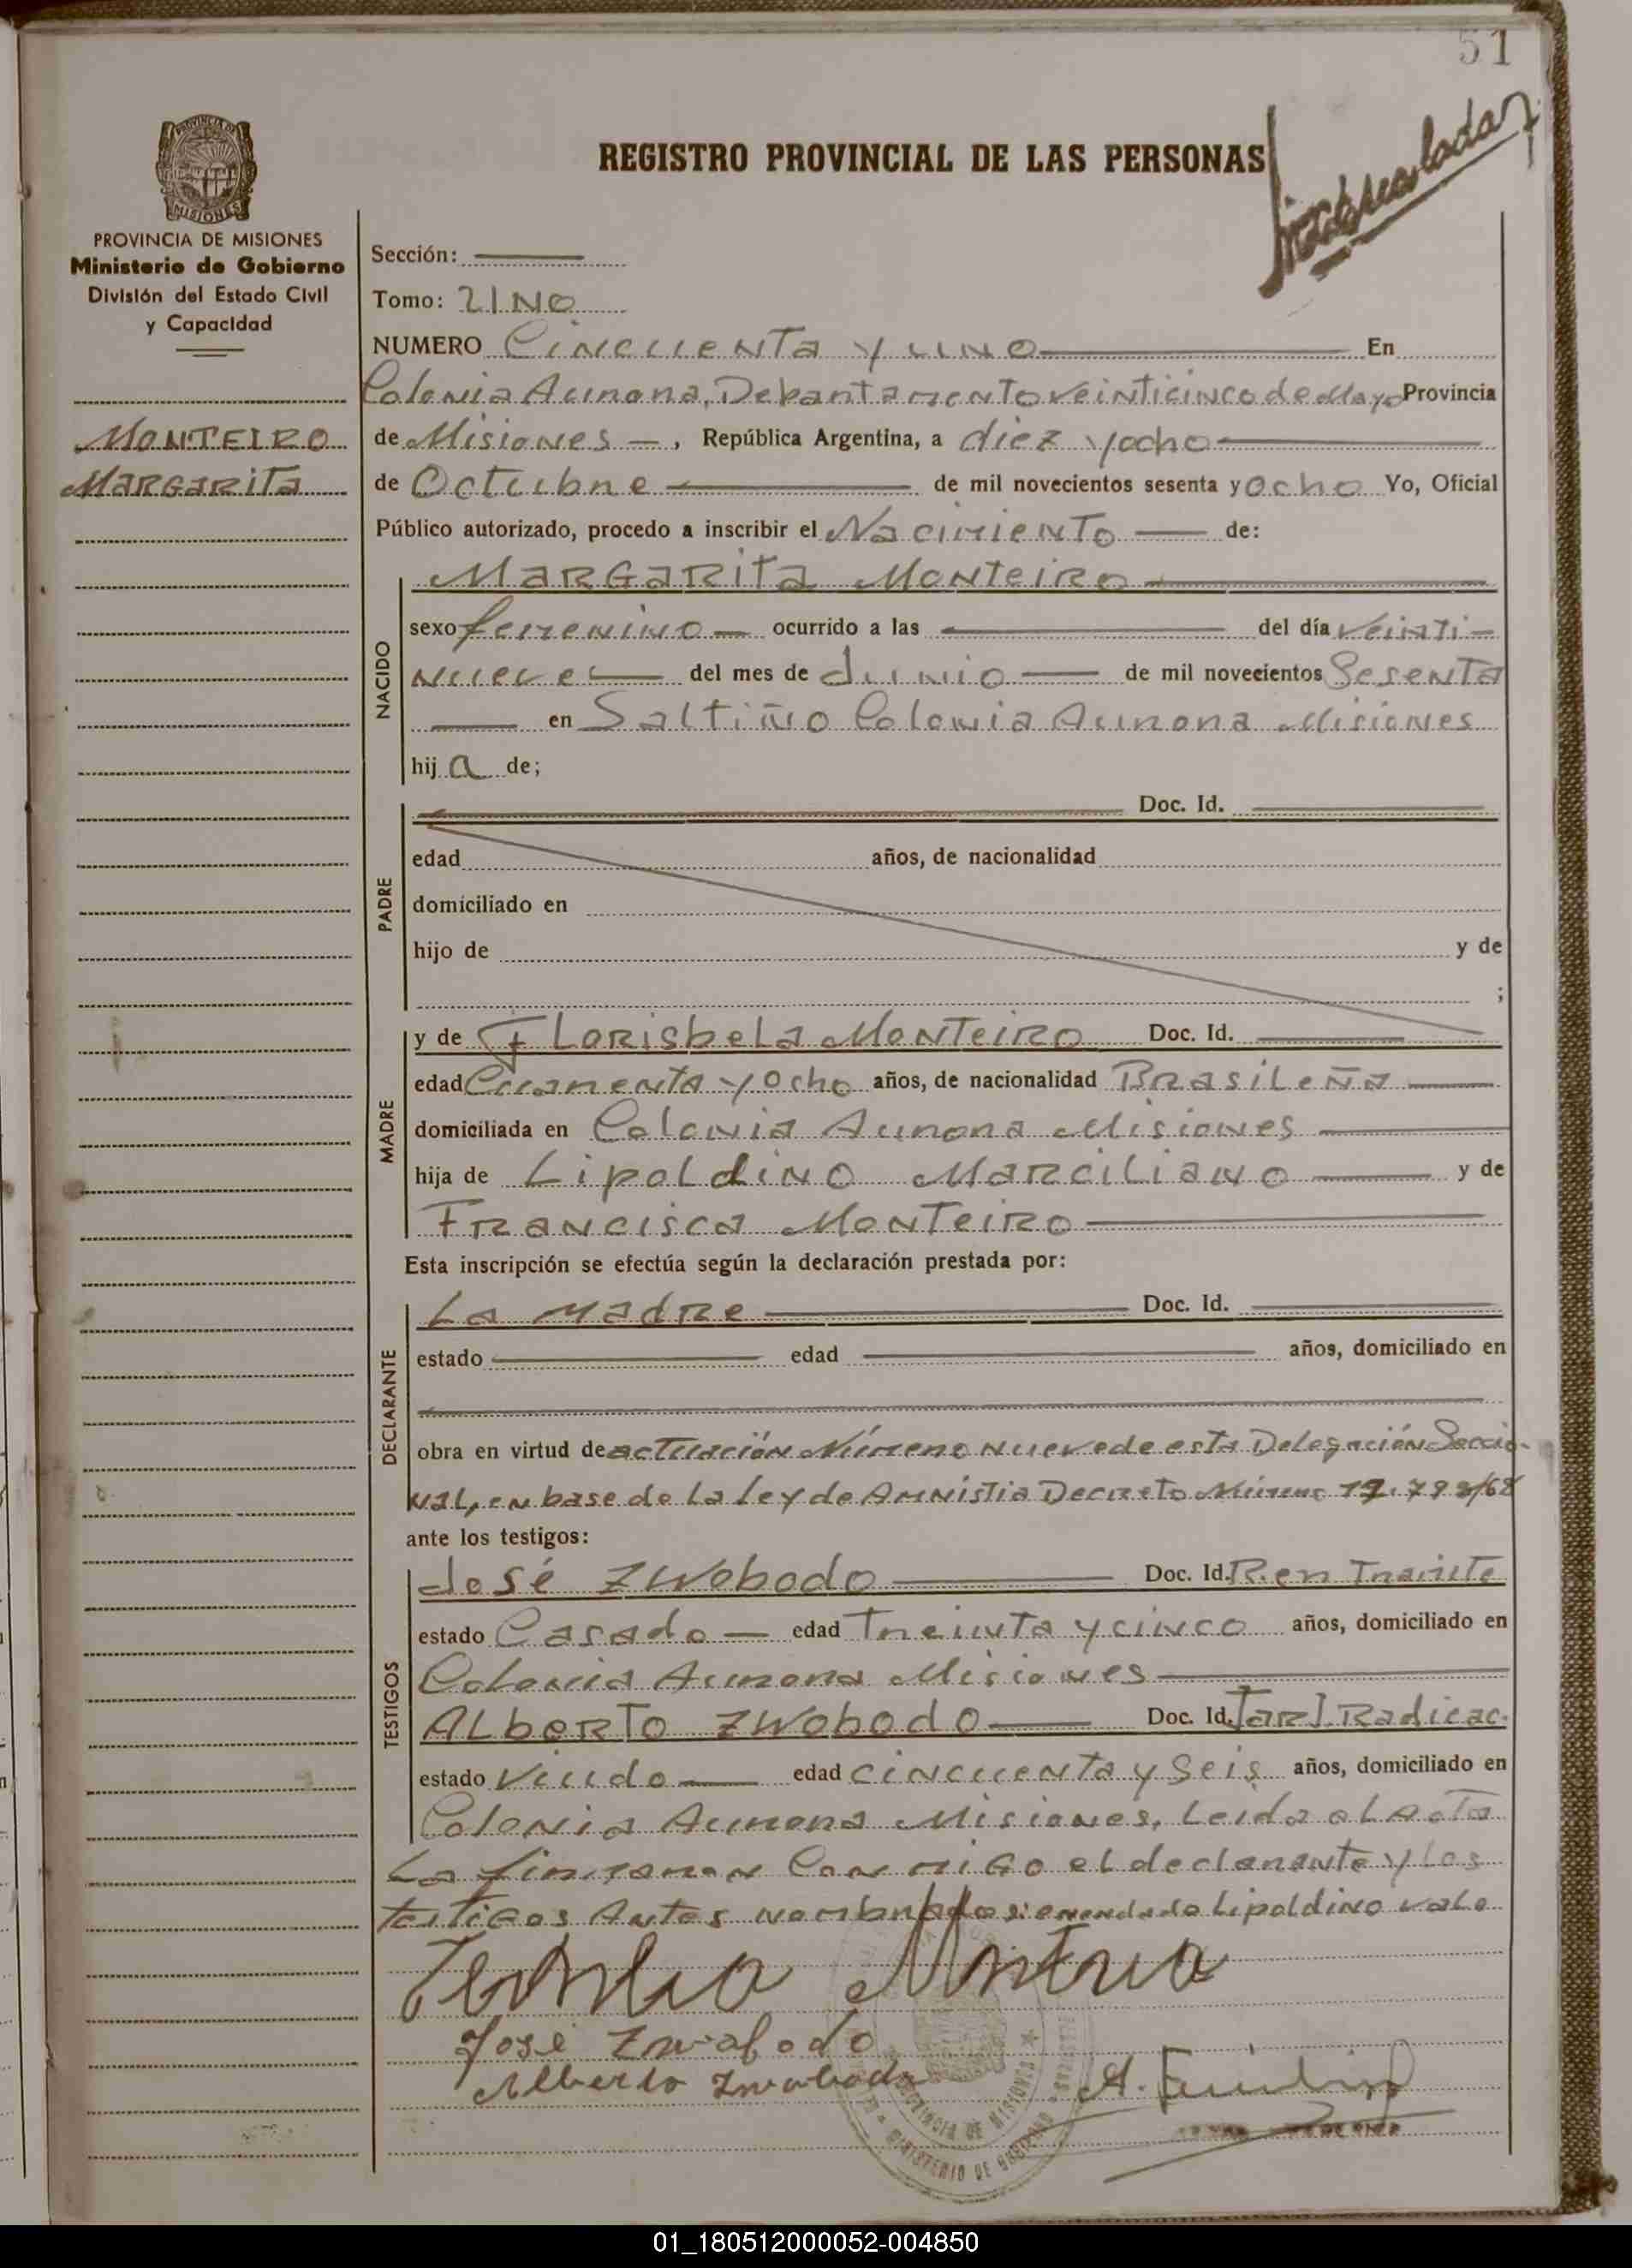 51
REGISTRO PROVINCIAL DE LAS PERSONAS
PROVINCIA DE MISIONES
Ministerio de Gobierno
División del Estado Civil
y Capacidad
MONTEIRO
MARGARITA
Sección:
Tomo: UNO
NUMERO Cincuenta y uno En
Colonia Aurora, Departamento Veinticinco de Mayo Provincia
de Misiones, República Argentina, a diez y ocho
de Octubre de mil novecientos sesenta y ocho Yo, Oficial
Público autorizado, procedo a inscribir el Nacimiento de:
NACIDO
Margarita Monteiro
sexo femenino ocurrido a las del día veinti-
nueve del mes de Junio de mil novecientos Sesenta
en Saltiño Colonia Aurora Misiones
hija de;
PADRE
Doc. Id.
edad años, de nacionalidad
domiciliado en
hijo de y de
;
MADRE
y de Florisbela Monteiro Doc. Id.
edad Cuarenta y Ocho años, de nacionalidad Brasileña
domiciliada en Colonia Aurora Misiones
hija de Lipoldino Marciliano y de
Francisca Monteiro
Esta inscripción se efectúa según la declaración prestada por:
DECLARANTE
La madre Doc. Id.
estado edad años, domiciliado en
obra en virtud de actuación Número nueve de esta Delegación Seccio-
nal, en base de la ley de Amnistia Decreto Número
ante los testigos:
TESTIGOS
José Zwobodo Doc. Id. R. en Tramite
estado Casado edad Treinta y cinco años, domiciliado en
Colonia Aurora Misiones
Alberto Zwobodo Doc. Id. Tarj. Radicac.
estado Viudo edad cincuenta y Seis años, domiciliado en
Colonia Aurora Misiones, Leida el Acta
La firmaron Conmigo el declarante y los
testigos Antes nombrados: enmendado Lipoldino vale
José Zwobodo
Alberto Zwobodo
PROVINCIA DE MISIONES
MINISTERIO DE GOBIERNO
01_180512000052-004850